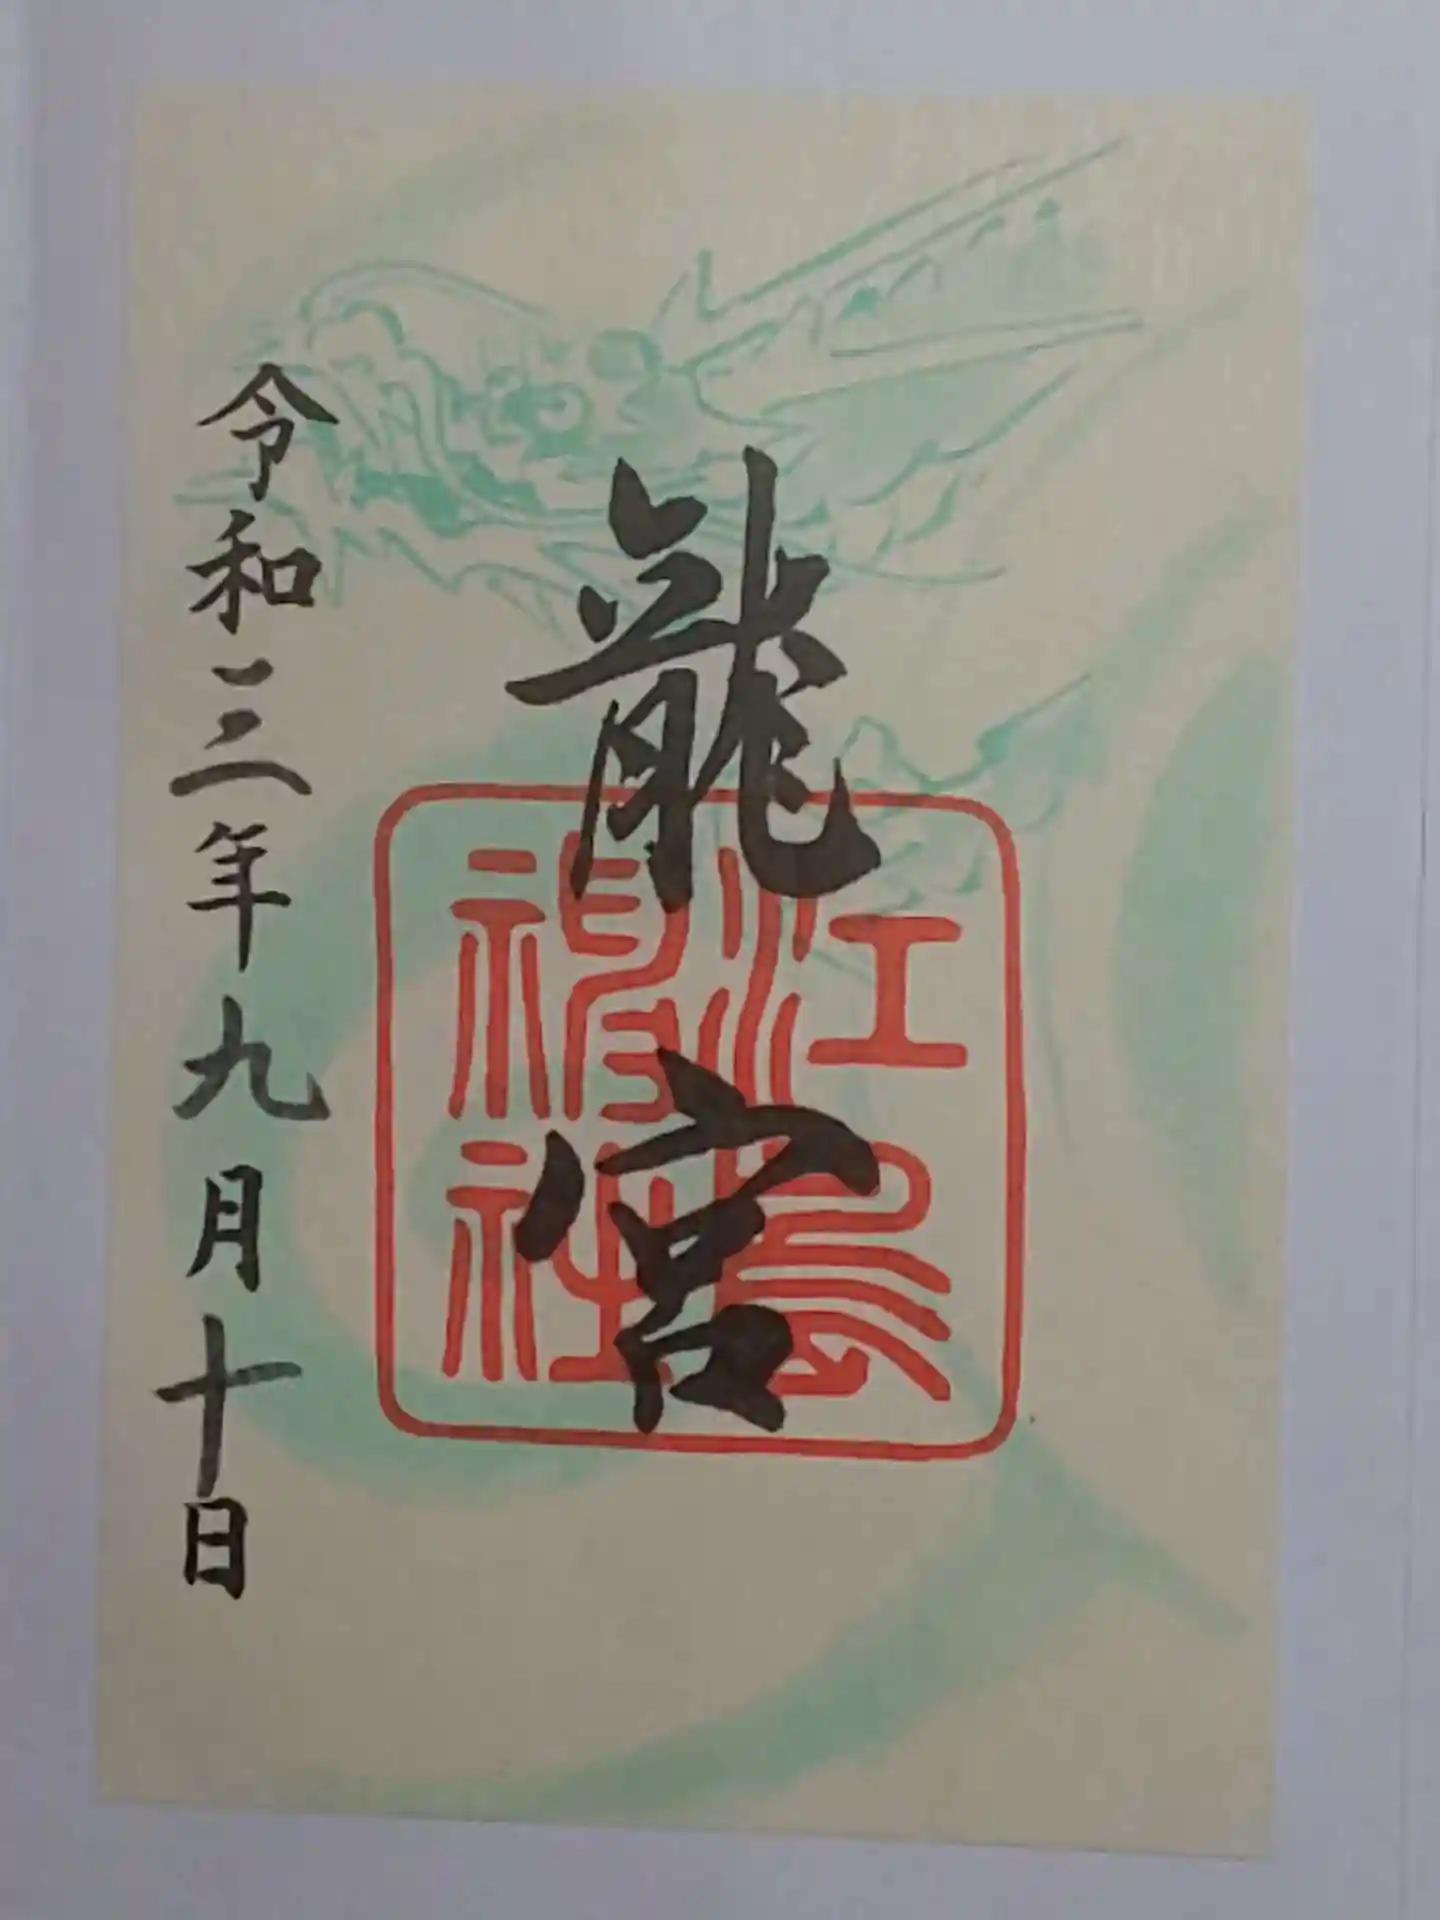 龍宮
江島神社
令和三年九月十日